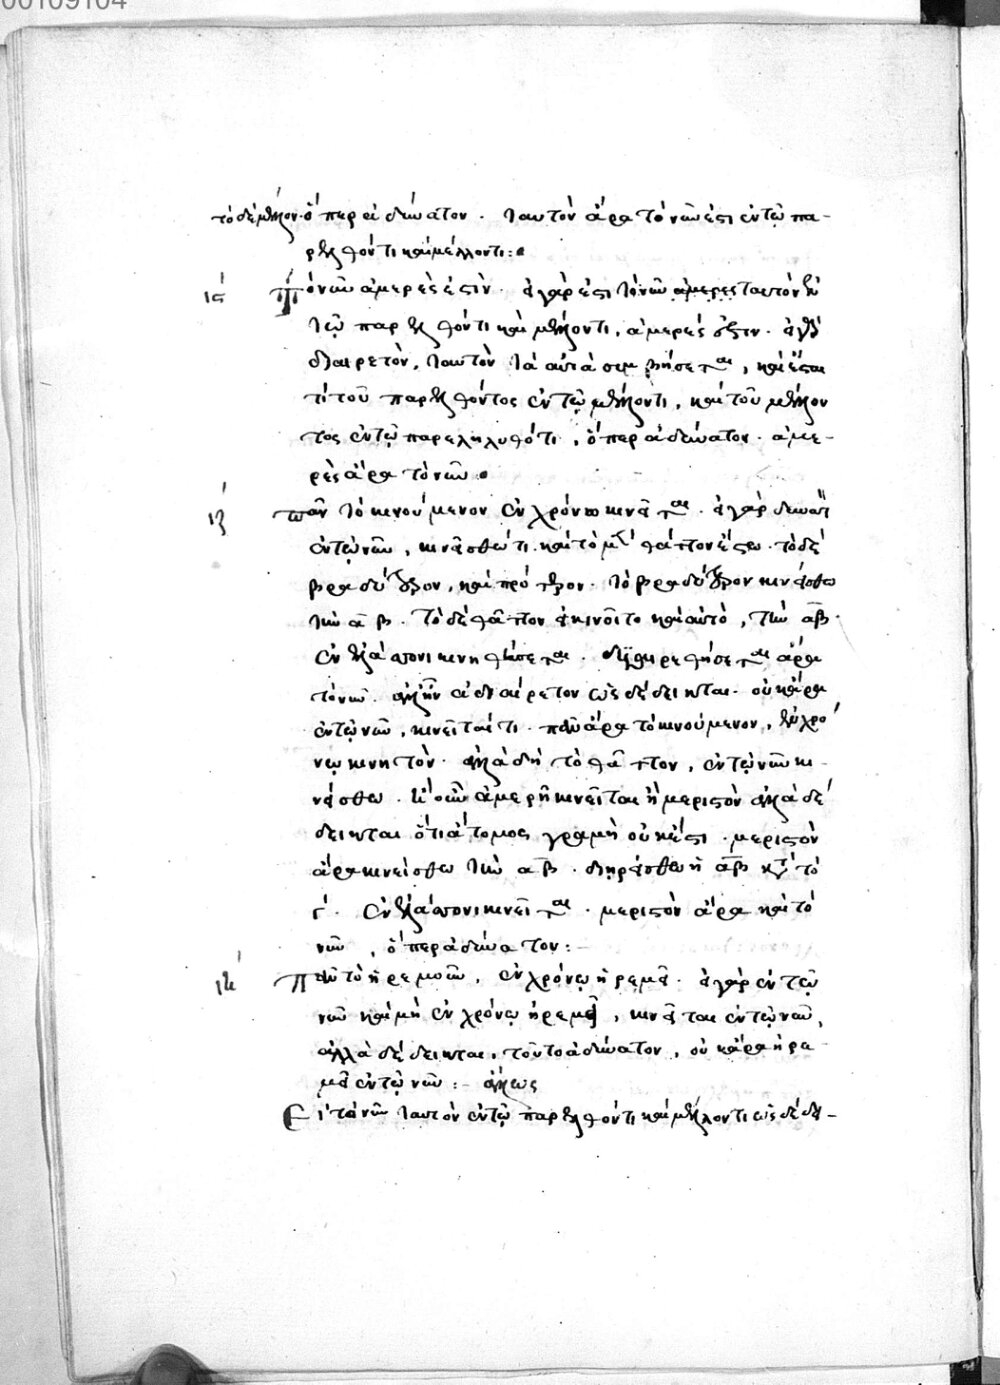 00109104
τὸ δὲ μέλλον· ὅπερ ἀδύνατον. ταυτὸν ἄρα τὸ νῦν ἐστι ἐν τῷ πα-
ρελθόντι καὶ μέλλοντι:
ις τὸ νῦν ἀμερές ἐστιν. εἰ γάρ ἐστι τὸ νῦν ἀμερες ταυτὸν ἐν
τῷ παρελθόντι καὶ μέλλοντι, ἀμερές ἐστιν. εἰ γὰρ
διαιρετὸν, ταυτὸν τὰ αὐτὰ συμβήσεται, καὶ ἔσται
τὶ τοῦ παρελθόντος ἐν τῷ μέλλοντι, καὶ τοῦ μέλλον
τος ἐν τῷ παρεληλυθότι, ὅπερ ἀδύνατον. ἀμε-
ρὲς ἄρα τὸ νῦν
ιζ πᾶν τὸ κινούμενον ἐν χρόνω κινεῖται. εἰ γὰρ δυνατὸν
ἐν τῷ νῦν, κινείσθω τι. καὶ τὸ μὲν θάττον ἔστω. τὸ δὲ
βραδύτερον, καὶ πρότερον. τὸ βραδύτερον κινείσθω
τὴν αβ. τὸ δὲ θᾶττον εἰ κινοῖτο καὶ αὐτὸ, τὴν αβ.
ἐν ἐλάττονι κινηθήσεται. διαιρεθήσεται ἄρα
τὸ νῦν. ἀλλ' ἦν ἀδιαίρετον ὡς δέδεικται. οὐκ ἄρα
ἐν τῷ νῦν, κινεῖταί τι. πᾶν ἄρα τὸ κινούμενον, ἐν χρό
νῳ κινητὸν. ἀλλὰ δὴ τὸ θᾶττον, ἐν τῷ νῦν κι-
νείσθω. ἢ οὖν ἀμερῆ κινεῖται ἢ μεριστὸν ἀλλὰ δέ
δεικται ὅτι ἄτομος γραμὴ οὐκ ἔστι. μεριστὸν
ἄρα κινείσθω τὴν αβ. διηρείσθω ἡ αβ κατὰ τὸ
γ. ἐν ἐλάττονι κινεῖται. μεριστὸν ἄρα καὶ τὸ
νῦν, ὅπερ ἀδύνατον:
ιη πᾶν τὸ ἠρεμοῦν, ἐν χρόνῳ ἠρεμεῖ. εἰ γὰρ ἐν τῷ
νῦν καὶ μὴ ἐν χρόνῳ ἠρεμεῖ, κινεῖται ἐν τῷ νῦν,
ἀλλὰ δέδεικται, τοῦτο ἀδύνατον, οὐκ ἄρα ἠρε-
μεῖ ἐν τῷ νῦν: ἄλλως
Εἰ τὸ νῦν ταυτὸν ἐν τῷ παρελθόντι καὶ μέλλοντι ὡς δέδει-